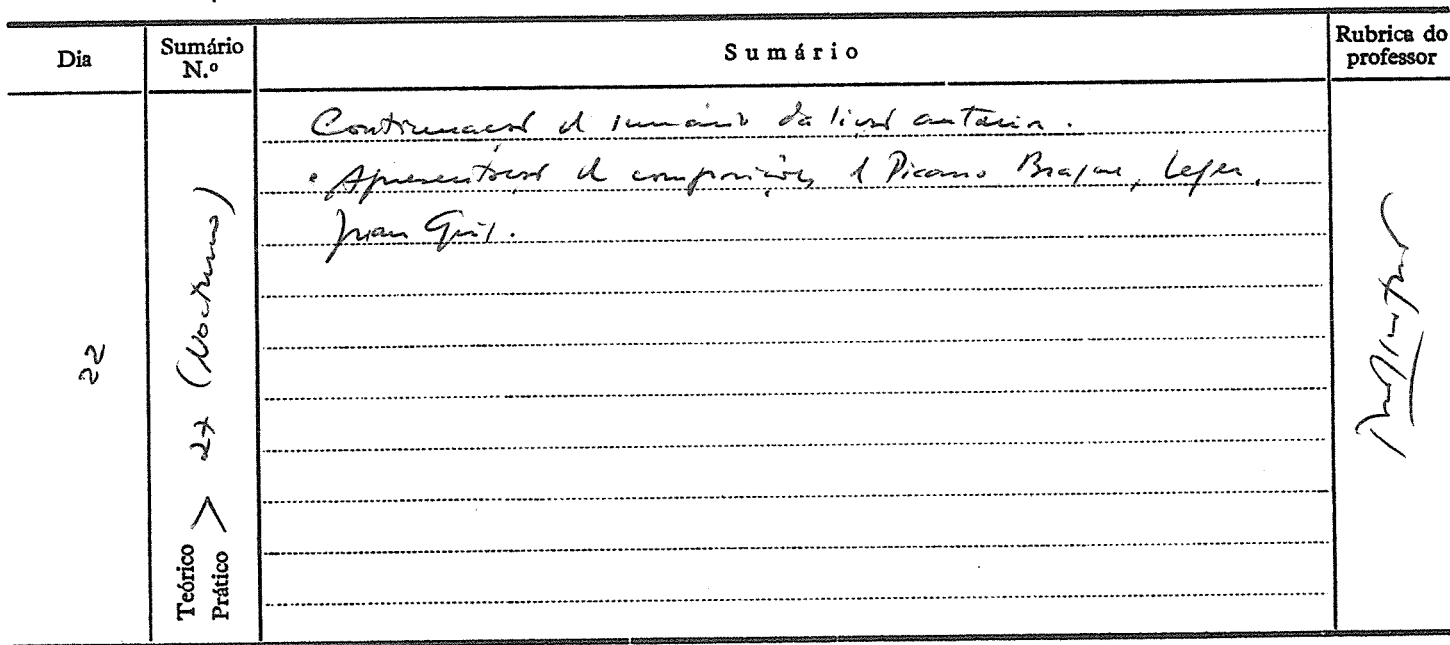 Dia
Sumário N.º
Sumário
Rubrica do professor
22
Teórico Prático > 27 (Nocturno)
Continuação d sumário da lição anterior.
• Apresentação d composições d Picasso Braque, Leger,
Juan Gris.